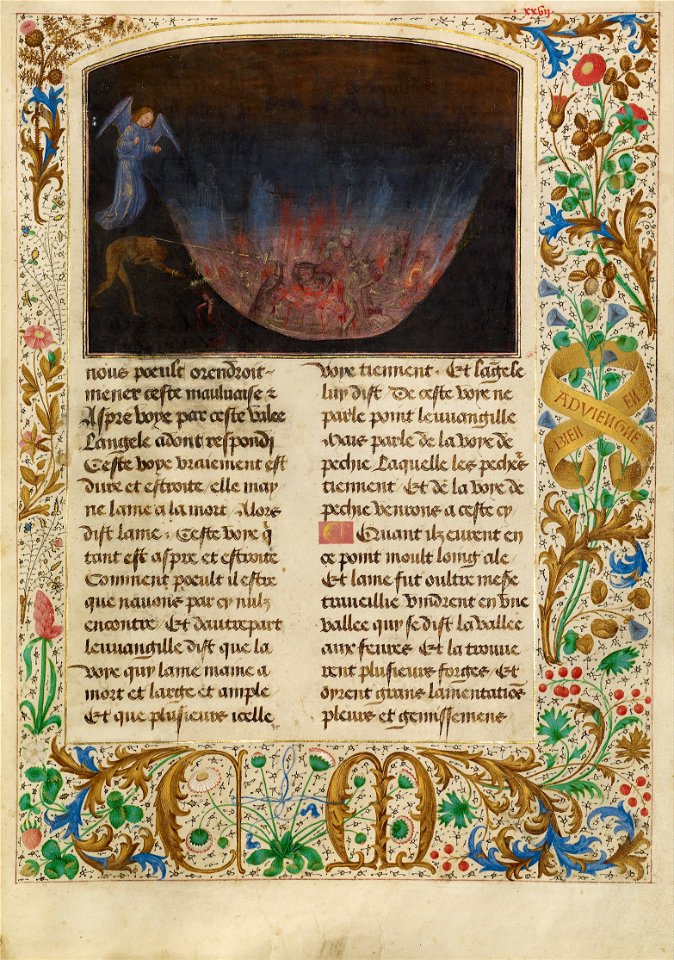 .xxvij.
nous poeult orendroit
mener ceste mauluaise &
Aspre voye par ceste valee
Langele adont respondi
Ceste voye vraiement est
dure et estroite / elle may
ne lame a la mort / Alors
dist lame / Ceste voye q̄
tant est aspre et estroite
Comment poeult il estre
que nauons par cy nulz
encontre / Et dautrepart
leuuangille dist que la
voye quy lame maine a
mort et large et ample
Et que plusieurs icelle
voye tiennent / Et lāgele
luy dist / De ceste voye ne
parle point leuuangille
Mais parle de la voye de
pechie Laquelle les pechēs
tiennent / Et de la voye de
pechie venrons a ceste cy
Quant ilz eurent en
ce point moult loing ale
Et lame fut oultre mesē
traueillie vindrent en vne
vallee quy se dist la vallee
aux feures / Et la trouue
rent plusieurs forges / Et
oyrent grans lamentatiōs
pleurs et gemissemens
BIEN EN ADVIENGNE
C M